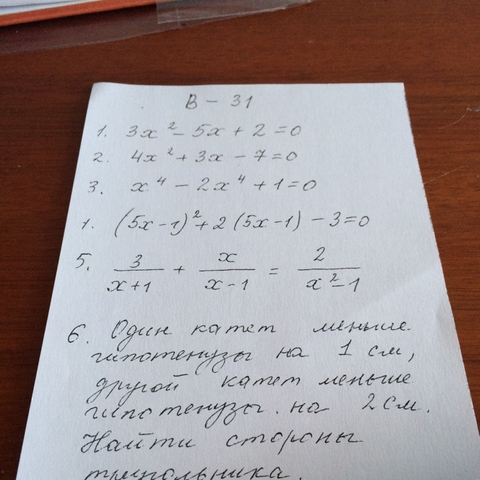 В - 31
1. 3x² - 5x + 2 = 0
2. 4x² + 3x - 7 = 0
3. x⁴ - 2x⁴ + 1 = 0
1. (5x-1)² + 2(5x-1) - 3 = 0
5. 3/(x+1) + x/(x-1) = 2/(x²-1)
6. Один катет меньше
гипотенузы на 1 см,
другой катет меньше
гипотенузы на 2 см.
Найти стороны
треугольника.